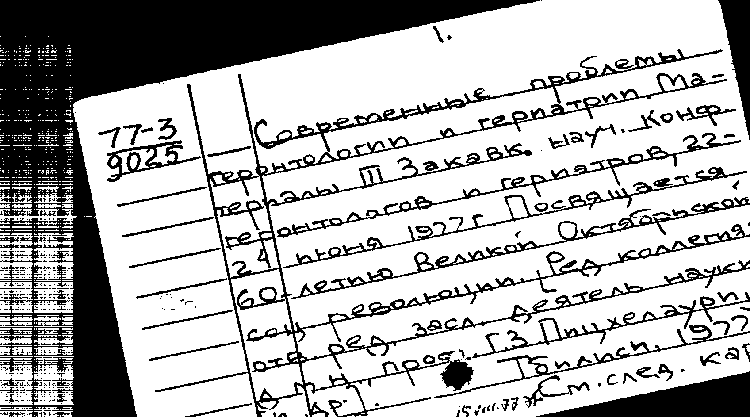 1.
77-3
9025
Современные проблемы
геронтологии и гериатрии. Ма-
териалы III Закавк. науч. конф.
геронтологов и гериатров, 22-
24 июня 1977 г. Посвящается
60-летию Великой Октябрьской
соц. революции. [Ред. коллегия:
отв. ред. засл. деятель науки
д.м.н., проф. Г.З. Пицхелаури
и др.]. Тбилиси, 1977
См. след. кар
15.VIII.77